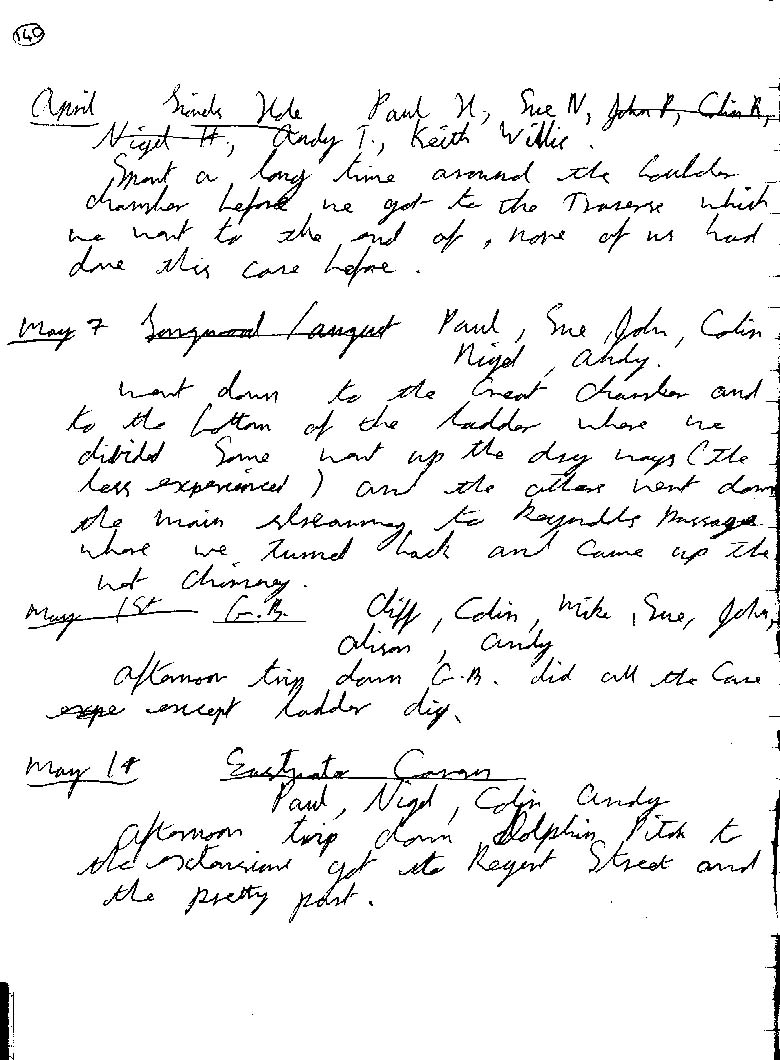 140
April Sinds Hole Paul H, Sue N, John R, Colin R,
Nigel H, Andy T., Keith Willis.
Spent a long time around the boulder
chamber before we got to the Traverse which
we went to the end of, none of us had
done this cave before.
May 7 Longwood / august Paul, Sue, John, Colin
Nigel, Andy.
Went down to the Great Chamber and
to the bottom of the ladder where we
divided Some went up the dry ways (the
less experienced) and the others went down
the main streamway to Reynolds Passage
where we turned back and came up the
wet chimney.
May 1st G.B. Cliff, Colin, Mike, Sue, John,
Alison, Andy
Afternoon trip down G.B. did all the cave
expe except ladder dig.
May 14 Eastwater Cavern
Paul, Nigel, Colin Andy
Afternoon trip down Dolphin Pitch to
the extensions got to Regent Street and
the pretty part.